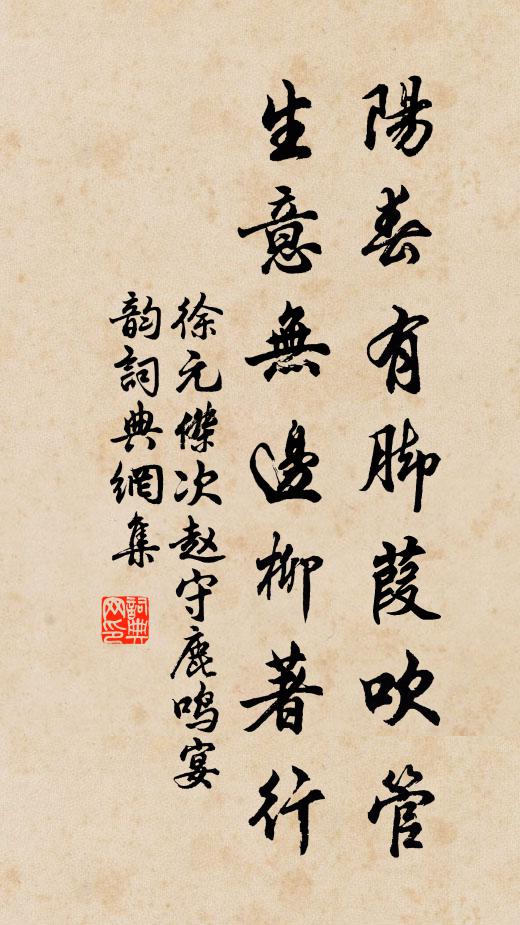 陽春有脚葭吹管
生意無邊柳著行
徐元傑次赵守鹿鸣宴
韵詞典網集
詞典网印